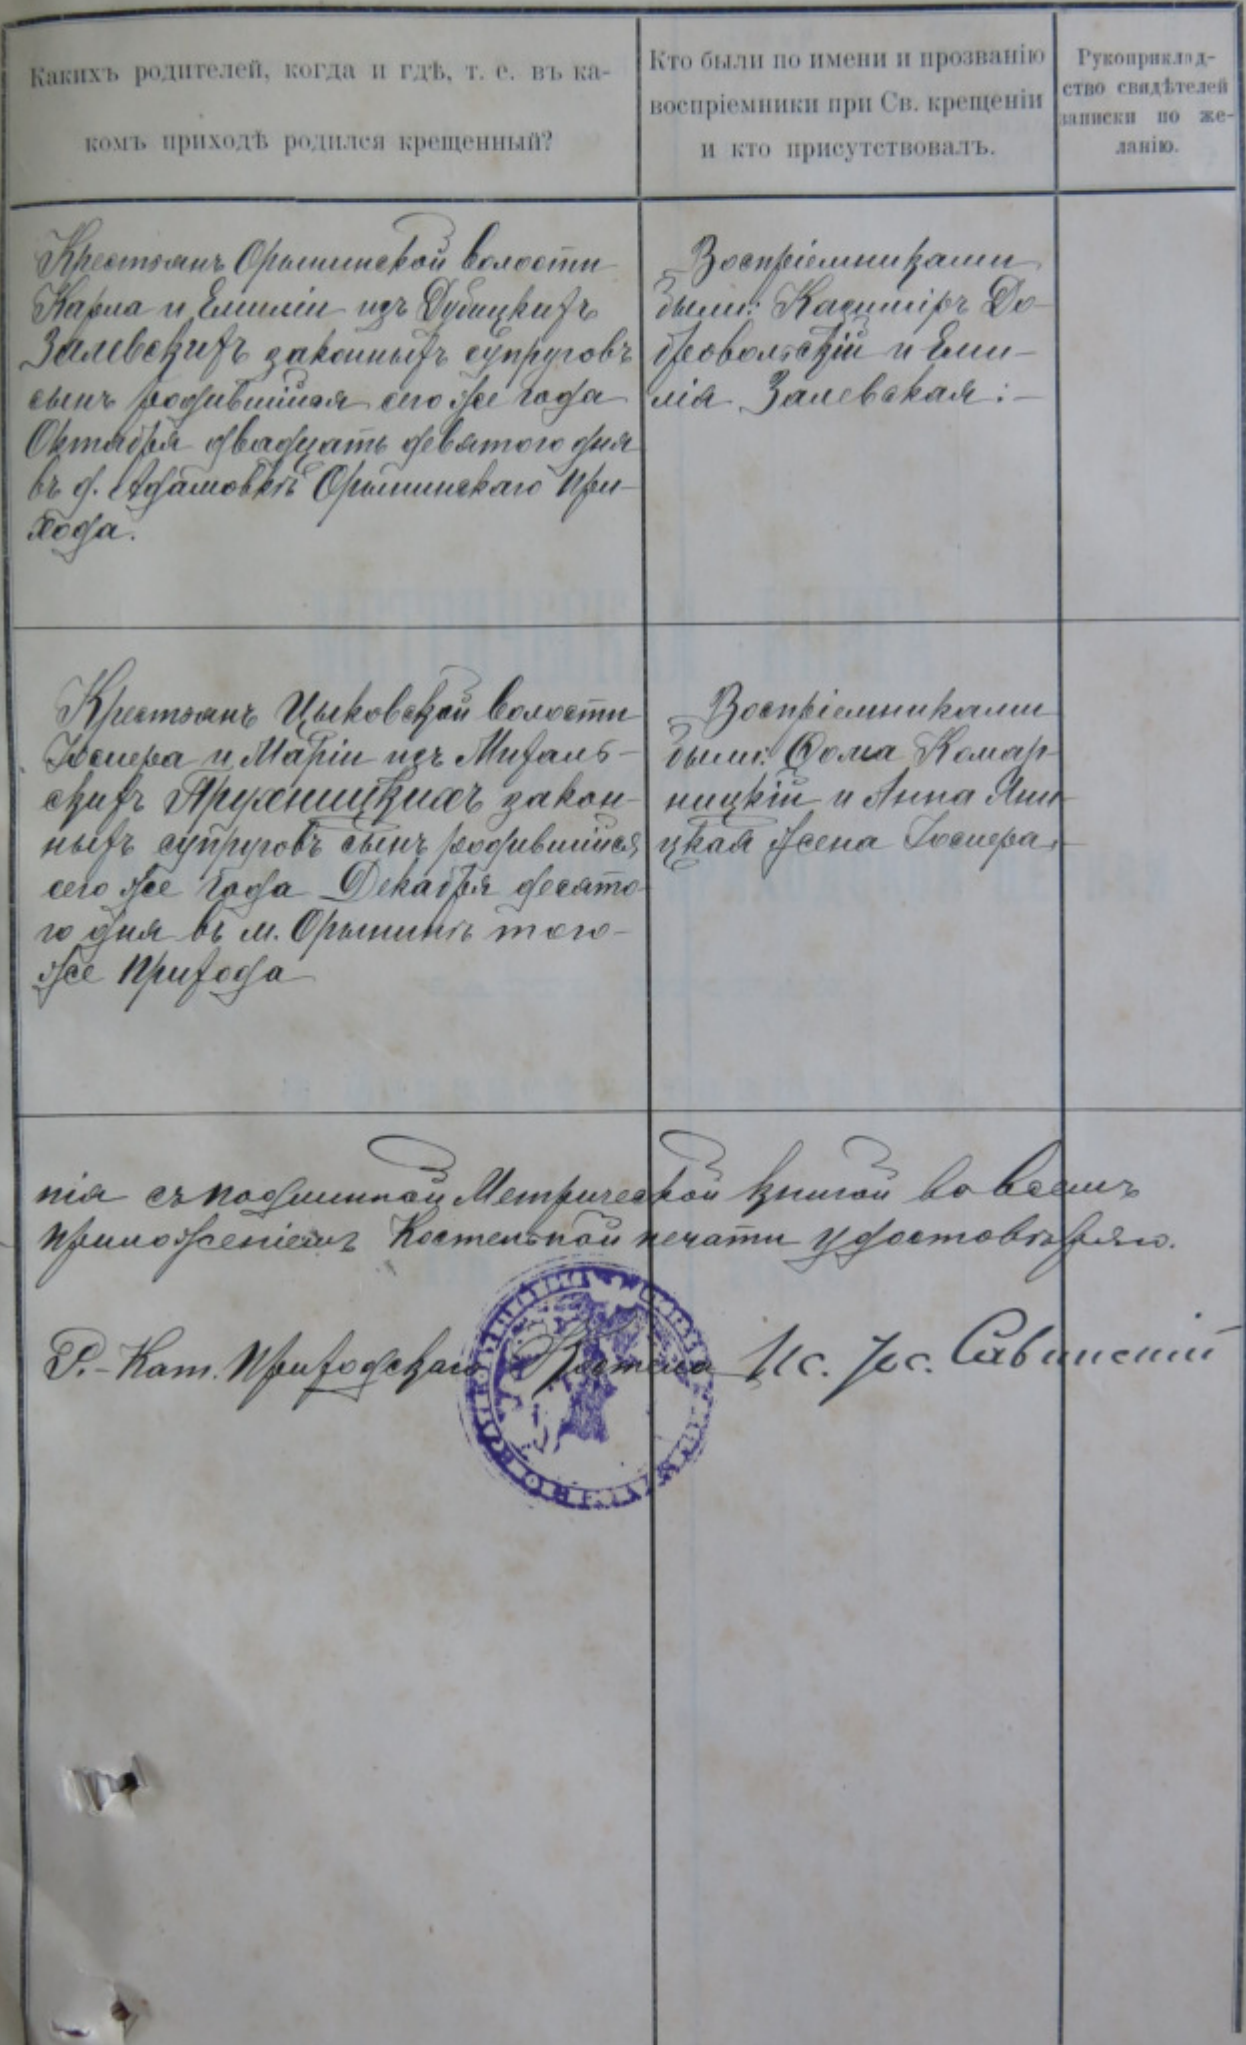 Какихъ родителей, когда и гдѣ, т. е. въ ка-
комъ приходѣ родился крещенный?
Кто были по имени и прозванію
воспріемники при Св. крещеніи
и кто присутствовалъ.
Рукоприклад-
ство свидѣтелей
записки по же-
ланію.
Крестьянъ Орынинской волости
Карла и Емиліи изъ Дубицкихъ
Залевскихъ законныхъ супруговъ
сынъ родившійся сего же года
Октября двадцать девятого дня
въ д. Адамовкѣ Орынинскаго при-
хода.
Воспріемниками
были: Казиміръ До-
бровольскій и Еми-
лія Залевская:-
Крестьянъ Цыковской волости
и Маріи изъ Михаль-
скихъ закон-
ныхъ супруговъ сынъ родившійся
сего же года Декабря десято-
го дня въ м. Орынинѣ того-
же прихода
Воспріемниками
были: Ѳома Комар-
ницкій и Анна
жена
нія съ подлинной Метрической книгой во всемъ
приложеніемъ Костельной печати удостовѣряю.
Р.-Кат. Приходскаго Костела Кс. Савинскій